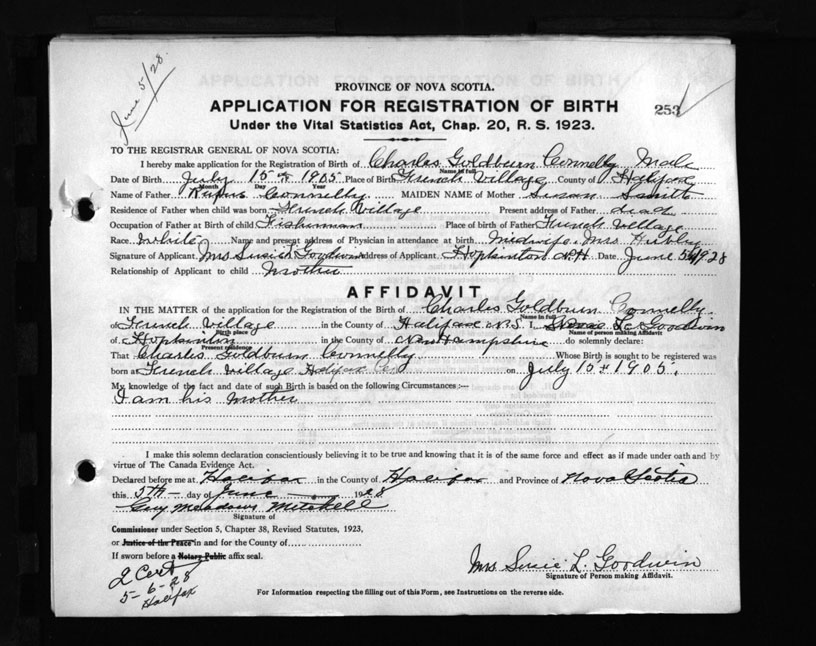 June 5/28
PROVINCE OF NOVA SCOTIA.
APPLICATION FOR REGISTRATION OF BIRTH
253
Under the Vital Statistics Act, Chap. 20, R. S. 1923.
TO THE REGISTRAR GENERAL OF NOVA SCOTIA:
I hereby make application for the Registration of Birth of Charles Goldburn Connelly Male
Name in full
Date of Birth July 15th 1905 Place of Birth French Village County of Halifax
Month Day Year
Name of Father Connelly MAIDEN NAME of Mother Susan Smith
Residence of Father when child was born French Village Present address of Father dead
Occupation of Father at Birth of child Fisherman Place of birth of Father French Village
Race White Name and present address of Physician in attendance at birth midwife Mrs Hubley
Signature of Applicant Mrs Susie L Goodwin Address of Applicant Hopkinton N.H Date June 5th 1928
Relationship of Applicant to child Mother
AFFIDAVIT
IN THE MATTER of the application for the Registration of the Birth of Charles Goldburn Connelly
Name in full
of French Village in the County of Halifax N.S. I, L. Goodwin
Birth place Name of person making Affidavit
of Hopkinton in the County of New Hampshire do solemnly declare:
Present residence
That Charles Goldburn Connelly Whose Birth is sought to be registered was
born at French Village Halifax Co on July 15th 1905.
My knowledge of the fact and date of such Birth is based on the following Circumstances:—
I am his mother
I make this solemn declaration conscientiously believing it to be true and knowing that it is of the same force and effect as if made under oath and by
virtue of The Canada Evidence Act.
Declared before me at Halifax in the County of Halifax and Province of Nova Scotia
this 5th day of June 1928
Guy Meadows Mitchell
Signature of
Commissioner under Section 5, Chapter 38, Revised Statutes, 1923,
or Justice of the Peace in and for the County of
If sworn before a Notary Public affix seal.
2 Cert
5-6-28
Halifax
Mrs. Susie L. Goodwin
Signature of Person making Affidavit.
For Information respecting the filling out of this Form, see Instructions on the reverse side.